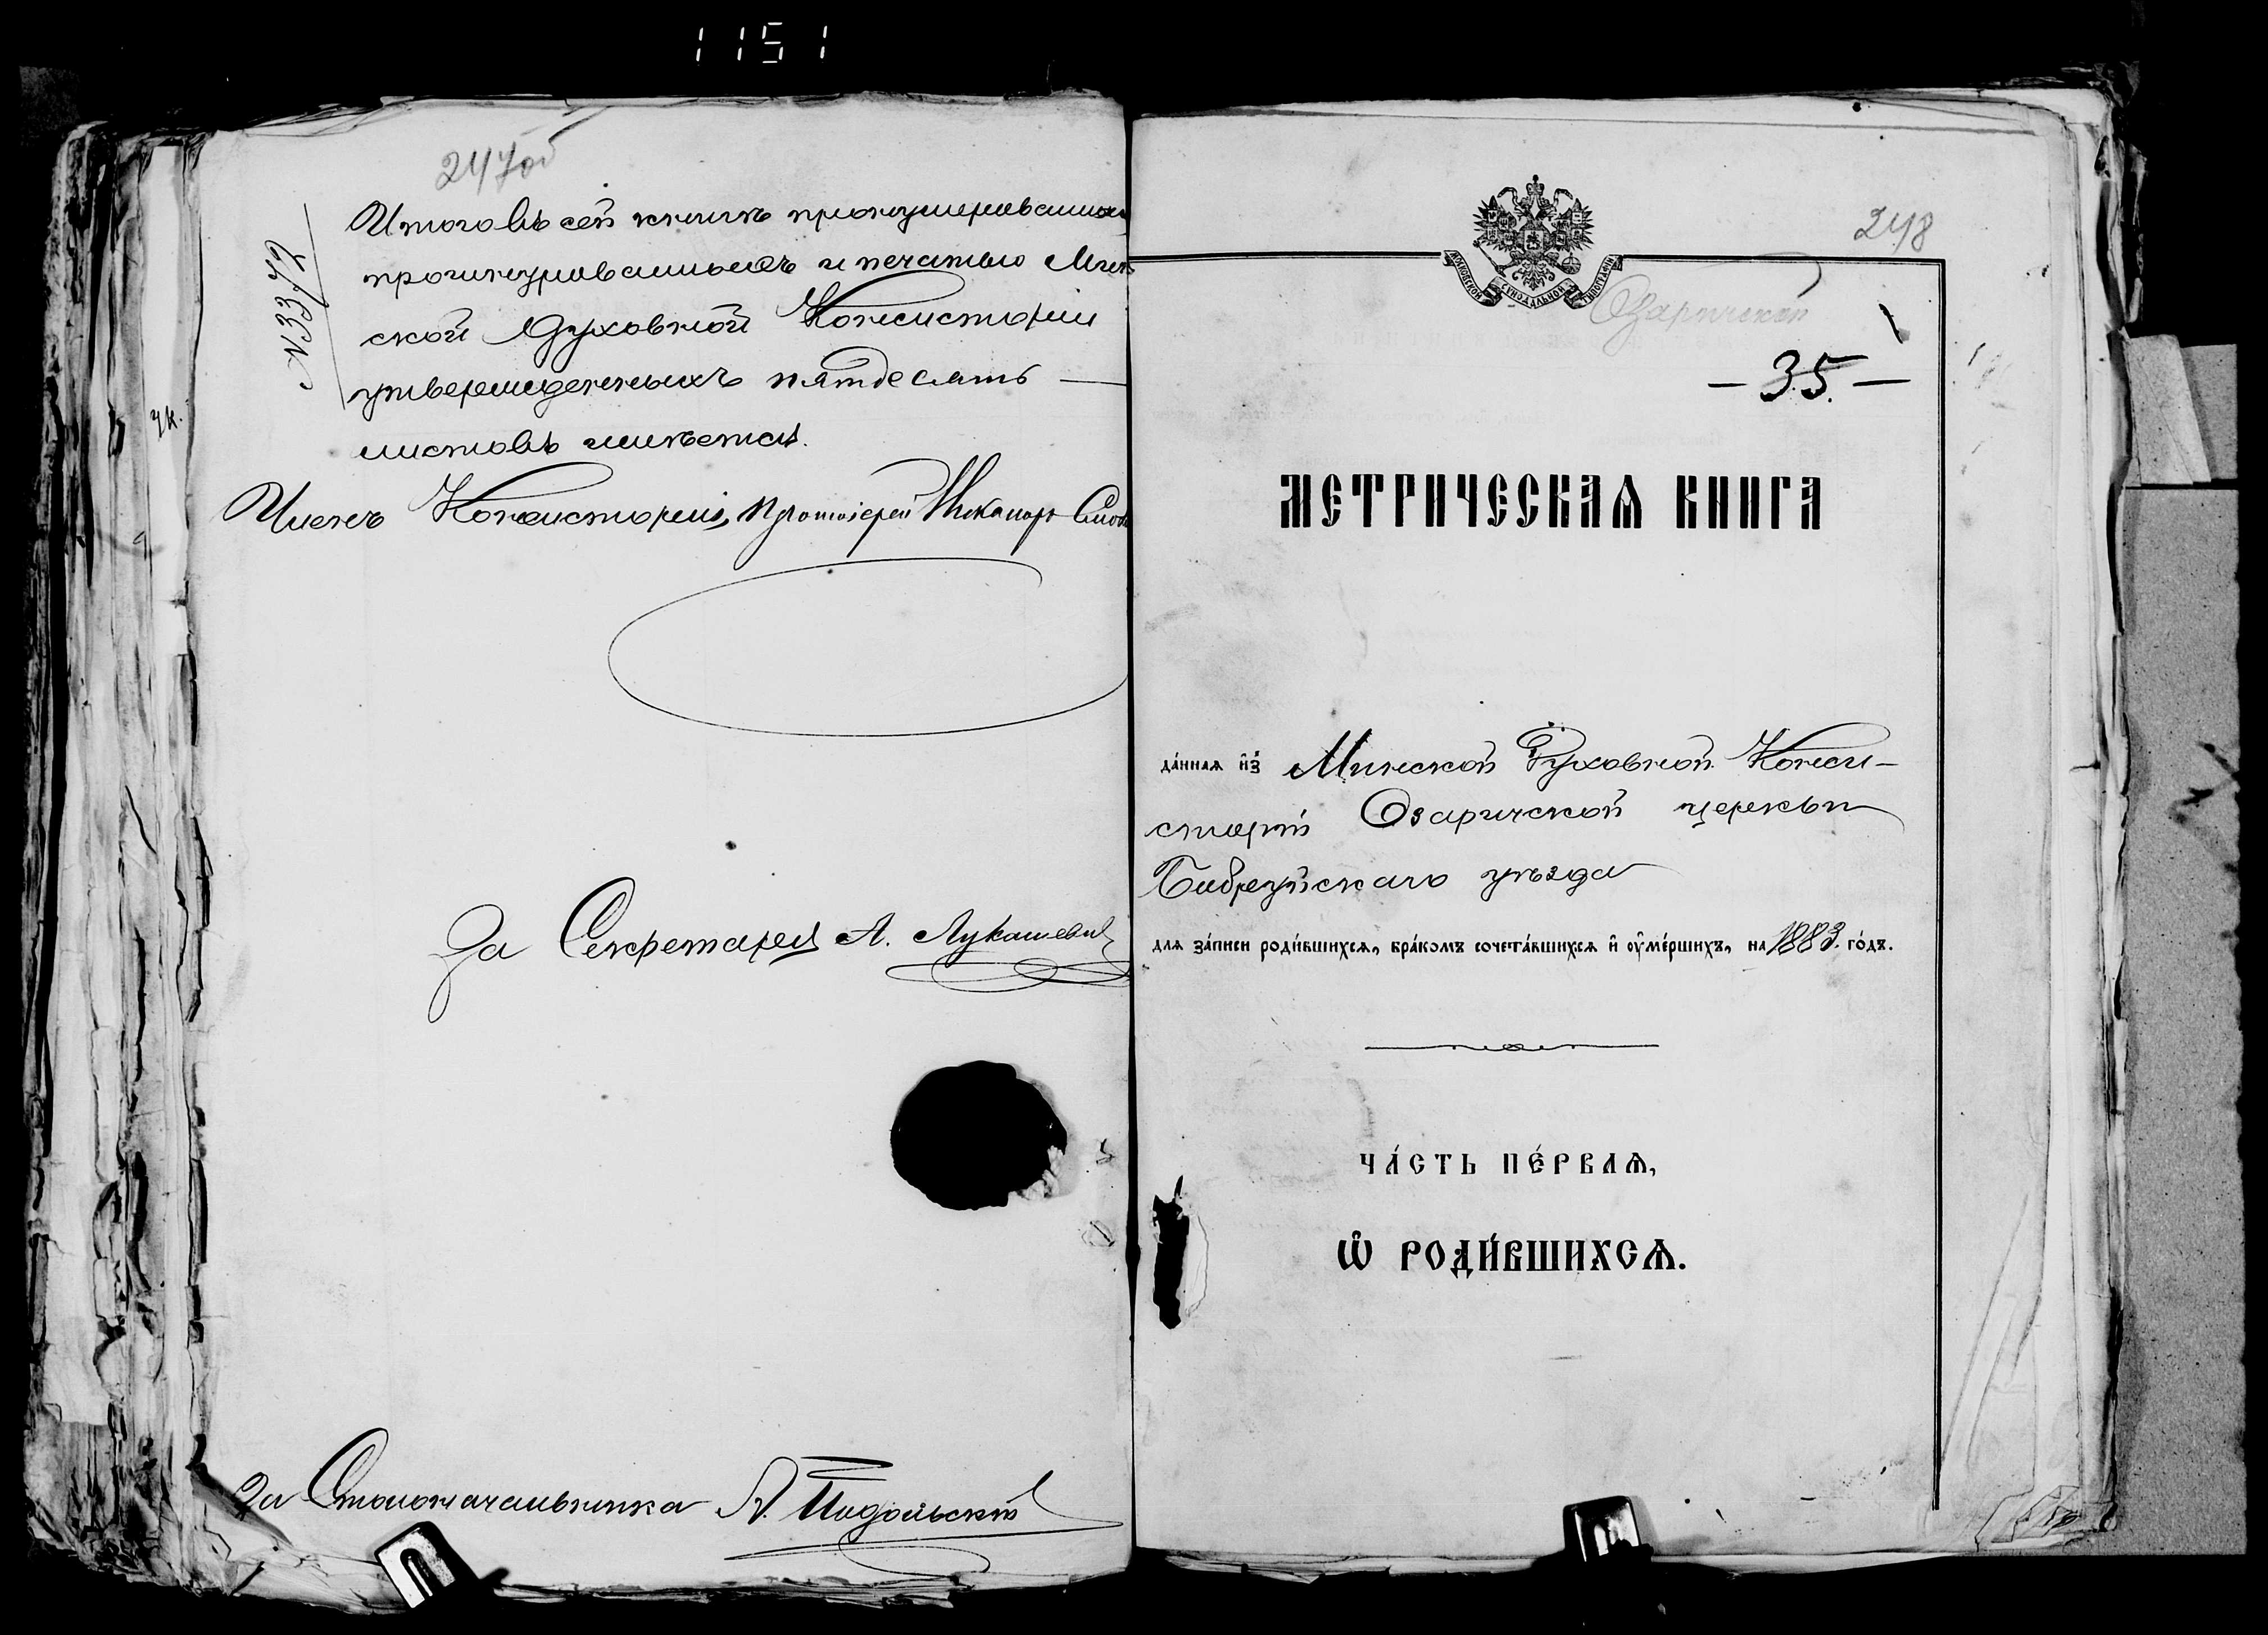 1151
247об
Итого въ сей книгѣ пронумерованныхъ
прошнурованныхъ и печатью Минс
ской Духовной Консисторіи
утвержденныхъ пятдесятъ —
листовъ имѣется.
№ 3372
чк.
Членъ Консисторіи, Протоіерей Никаноръ
За Секретаря А. Лукашевичъ
За Столоначальника А. Подольскій
248
МОСКОВСКОЙ СѴНОДАЛЬНОЙ ТИПОГРАФІИ
Озаричской
— 35. —
МЕТРИЧЕСКАѦ КНИГА
да́ннаѧ и҆з̾ Минской Духовной Конси-
сторіи Озаричской церкви
Бобруйскаго уѣзда
длѧ за́писи роди́вшихсѧ, бра́комъ сочета́вшихсѧ и҆ ᲂу҆ме́ршихъ, на 1883. го́дъ.
ЧА́СТЬ ПЕ́РВАѦ,
Ѡ҆ РОДИ́ВШИХСѦ.